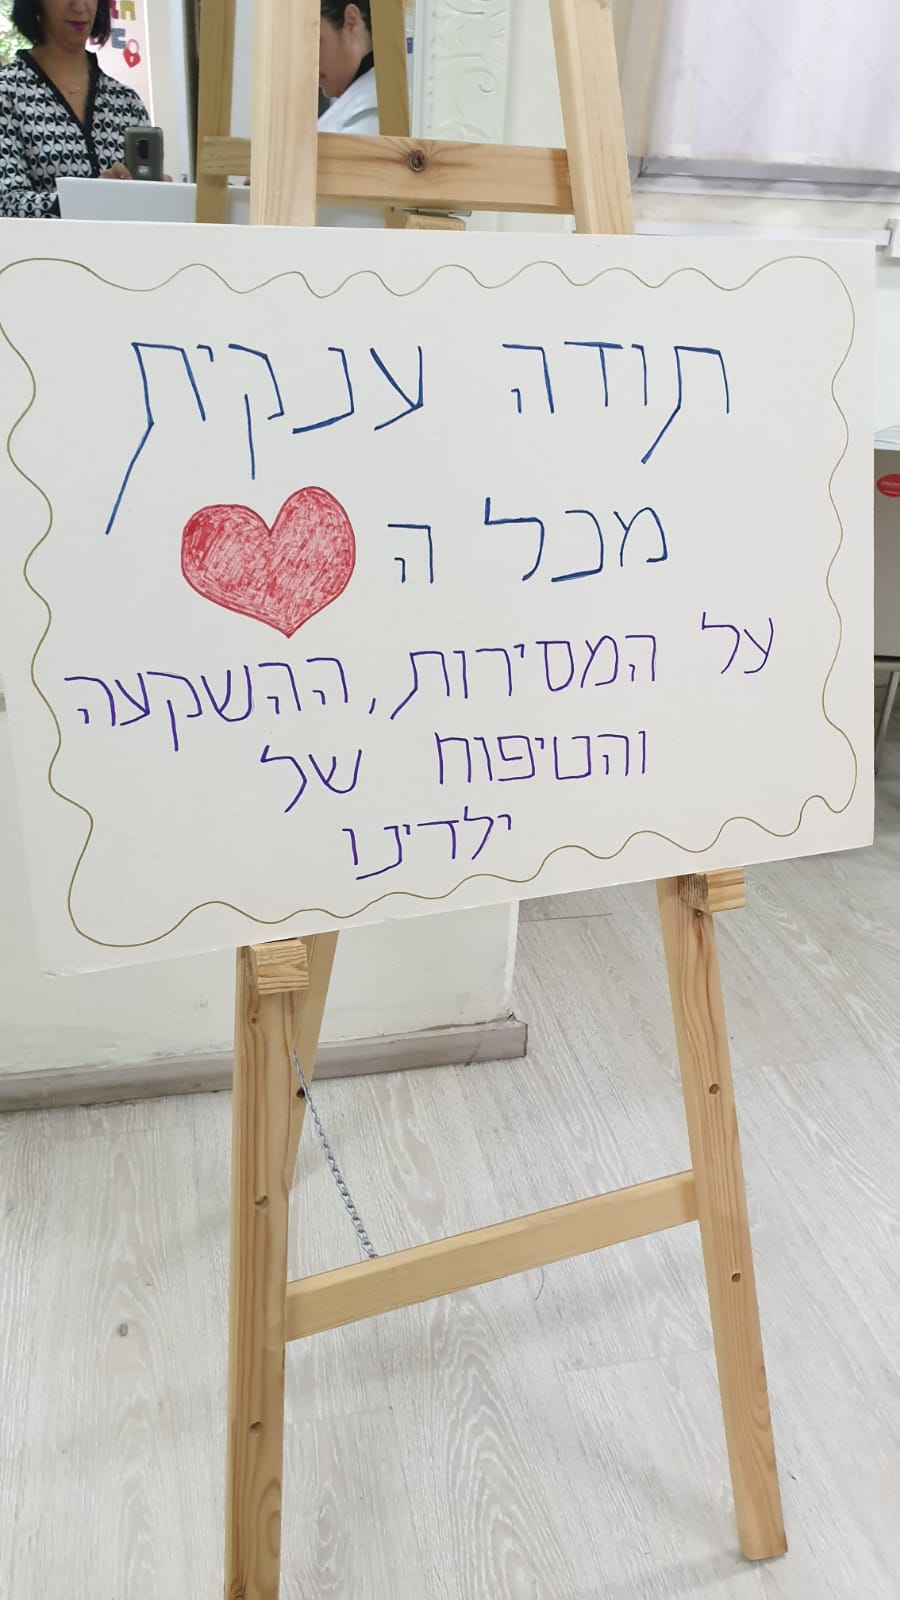 תודה ענקית
מכל ה
על המסירות, ההשקעה
והטיפוח של
ילדינו